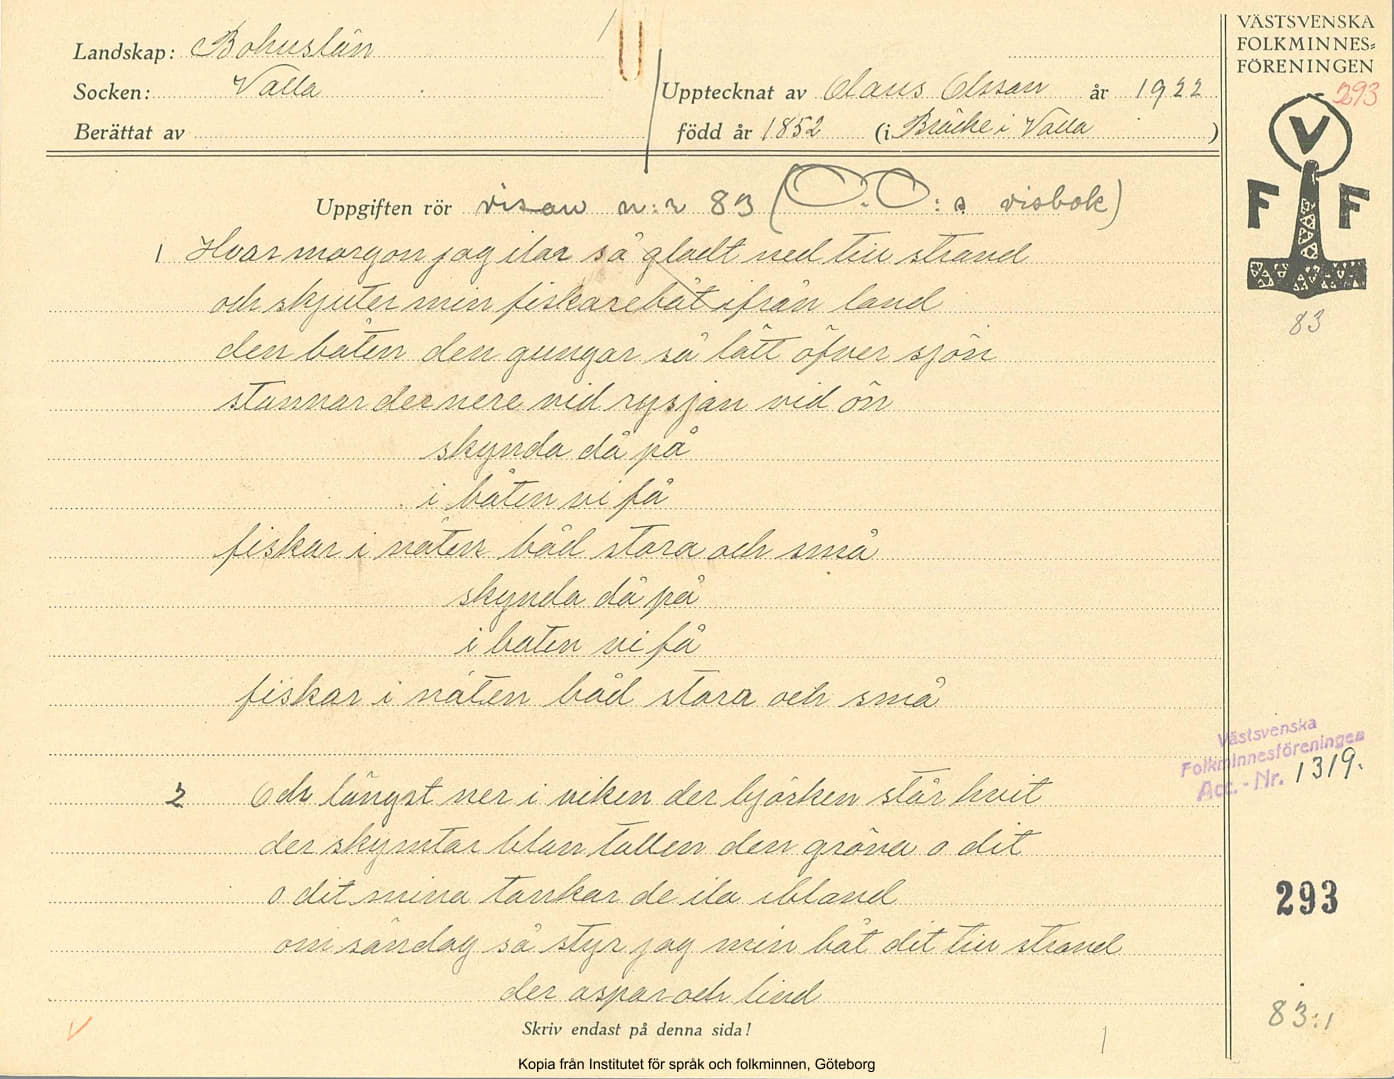 Landskap: Bohuslän
Socken: Valla
Berättat av
Upptecknat av Olaus Olsson år 1922
född år 1852 (i Bräcke i Valla )
VÄSTSVENSKA
FOLKMINNES=
FÖRENINGEN
293
V
F F
83
Uppgiften rör visan n:r 83 (O. O:s visbok)
1 Hvar morgon jag ilar så gladt ned till strand
och skjuter min fiskarebåt ifrån land
den båten den gungar så lätt öfver sjön
stannar der nere vid rysjan vid ön
skynda då på
i båten vi få
fiskar i näten båd stora och små
skynda då på
i båten vi få
fiskar i näten båd stora och små
2 Och längst ner i viken der björken står hvit
der skymtar blan tallen den gröna o dit
o dit mina tankar de ila ibland
om söndag så styr jag min båt dit till strand
der aspar och lind
Skriv endast på denna sida!
Västsvenska
Folkminnesföreningen
Acc.-Nr. 1319.
293
83:1
1
Kopia från Institutet för språk och folkminnen, Göteborg